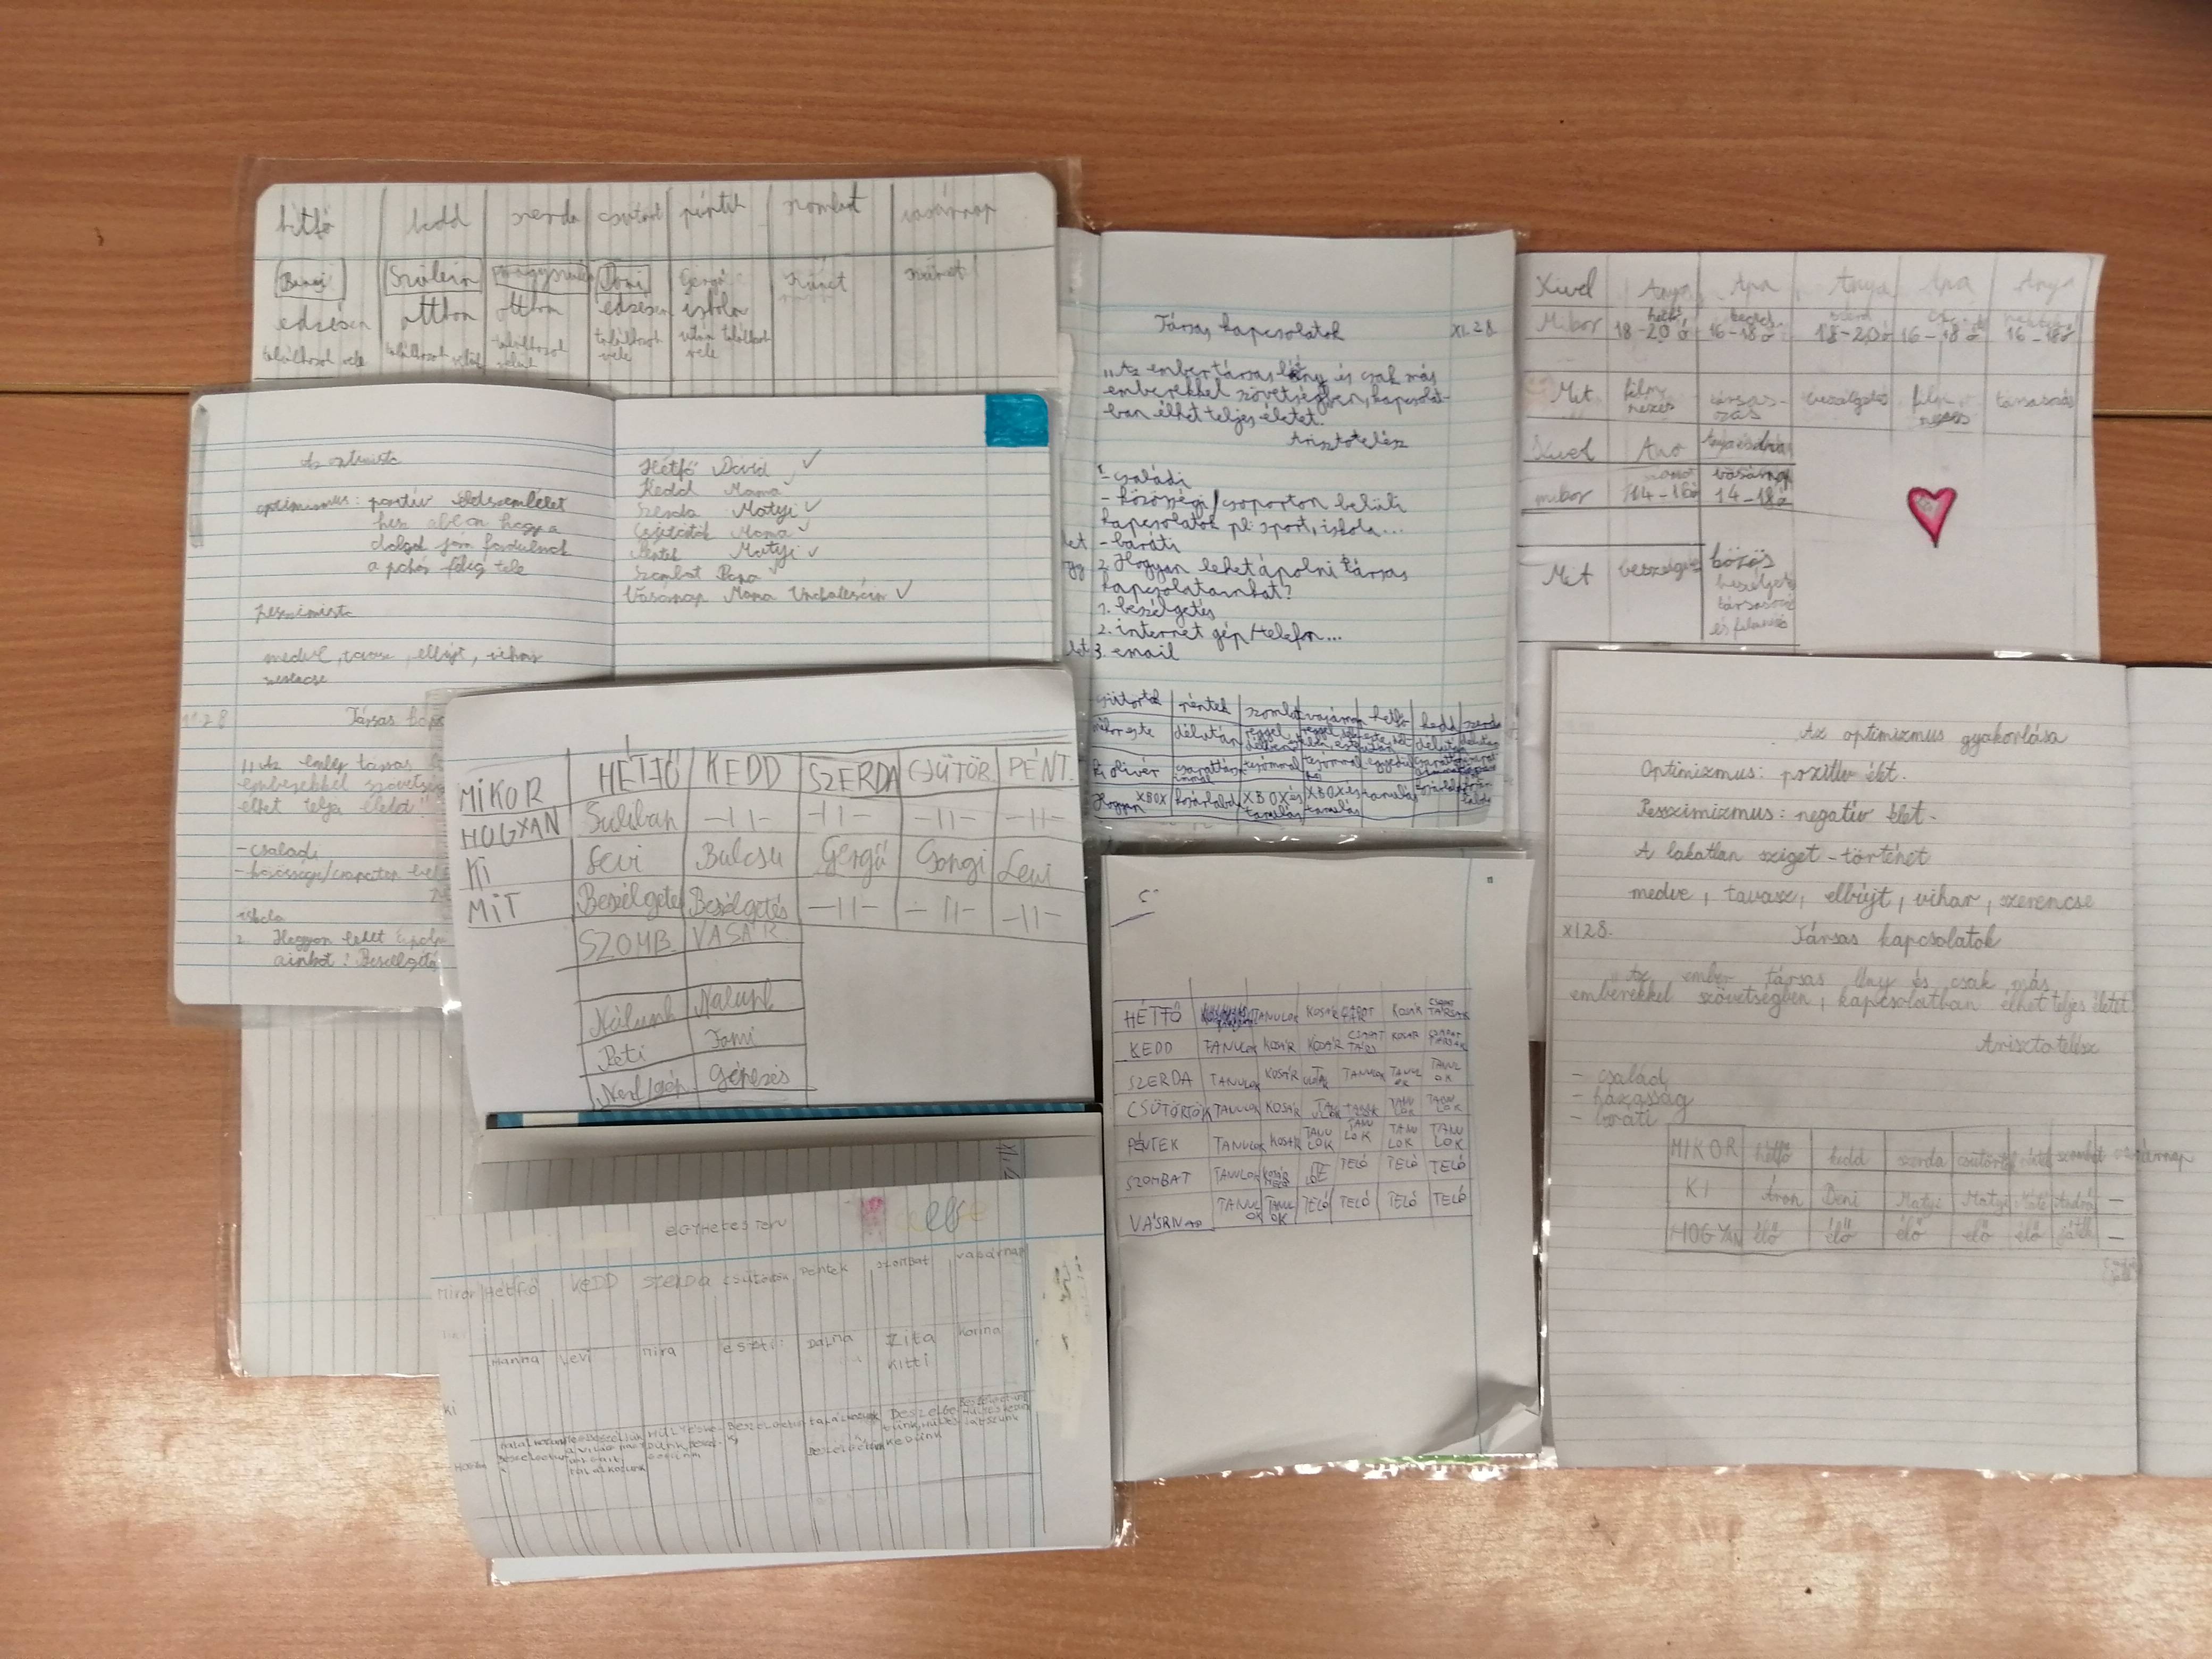 hétfő kedd szerda csütört péntek szombat vasárnap
Bengi Szüleim nagyszülei Domi Gergő szünet szünet
edzésen otthon otthon edzésen iskola
találkozok vele találkozok velük találkozok velük találkozok vele után találkozok vele
Az optimista
optimizmus: pozitív életszemlélet
hisz abban hogy a
dolgok jóra fordulnak
a pohár félig tele
pesszimista
medve, tavasz, elbújt, vihar
szerencse
11.28 Társas kapcs
"Az ember társas
emberekkel szövetség
élhet teljes életet!"
- családi
- közösségi/csoporton bel
iskola
2. Hogyan lehet ápoln
ainkat? Beszélgeté
Hétfő Dávid ✓
Kedd Mama ✓
Szerda Matyi ✓
Csütörtök Mama ✓
Péntek Matyi ✓
Szombat Papa ✓
Vasárnap Mama Unokatesóm ✓
MIKOR HÉTFŐ KEDD SZERDA CSÜTÖR. PÉNT.
HOGYAN Suliban -11- -11- -11- -11-
KI Levi Bulcsu Gergő Gongi Levi
MIT Beszélgetés Beszélgetés -11- -11- -11-
SZOMB VASÁR
Nálunk Nálunk
Peti Tomi
Nerf Gépezés
EGYHETES TERV
Mikor HÉTFŐ KEDD SZERDA CSÜTÖRTÖK Péntek szombat vasárnap
Hanna Levi Mira ESZTI Dalma Zita Korina
Kitti
Ki
Hogyan
Társas kapcsolatok XI.28.
"Az ember társas lény és csak más
emberekkel szövetségben, kapcsolat-
ban élhet teljes életet.
Arisztotelész
1. - családi
- közösségi/csoporton belüli
kapcsolatok pl: sport, iskola...
- baráti
2. Hogyan lehet ápolni társas
kapcsolatainkat?
1. beszélgetés
2. internet gép/telefon...
3. email
csütörtök péntek szombat vasárnap hétfő kedd szerda
mikor este délután reggel
Ki Olivér csapattársaimmal tesómmal tesómmal egyedül
Hogyan XBOX kosárlabda XBOX és tanulás XBOX és tanulás tanulás kosárlabda
Kivel Anya Apa Anya Apa Anya
Mikor hétfő 18-20 ó 16-18 ó 18-20 ó 16-18 ó 16-18 ó
Mit film nézés társasozás beszélgetés film nézés társasozás
Kivel Apa
mikor 14-16 ó vasárnap 14-18 ó
Mit beszélgetés közös beszélgetés társasozás és filmnézés
HÉTFŐ TANULOK KOSÁR CSAPATTÁR KOSÁR CSAPATTÁRSAK
KEDD TANULOK KOSÁR KOSÁR CSAPATTÁRS KOSÁR CSAPATTÁRSAK
SZERDA TANULOK KOSÁR TANULOK TANULOK TANULOK
CSÜTÖRTÖK TANULOK KOSÁR TANULOK TANULOK TANULOK
PÉNTEK TANULOK KOSÁR TANULOK TANULOK TANULOK TANULOK
SZOMBAT TANULOK TELÓ TELÓ TELÓ
VASRNAP TANULOK TANULOK TELÓ TELÓ TELÓ TELÓ
Az optimizmus gyakorlása
Optimizmus: pozitív élet.
Pesszimizmus: negatív élet.
A lakatlan sziget - történet
medve, tavasz, elbújt, vihar, szerencse
XI28. Társas kapcsolatok
Az ember társas lény és csak más
emberekkel szövetségben, kapcsolatban élhet teljes életet.
Arisztotelész
- család
- házasság
- baráti
MIKOR hétfő kedd szerda csütörtök péntek szombat vasárnap
KI Áron Deni Matyi Matyi Máté András -
HOGYAN élő élő élő élő élő játék -